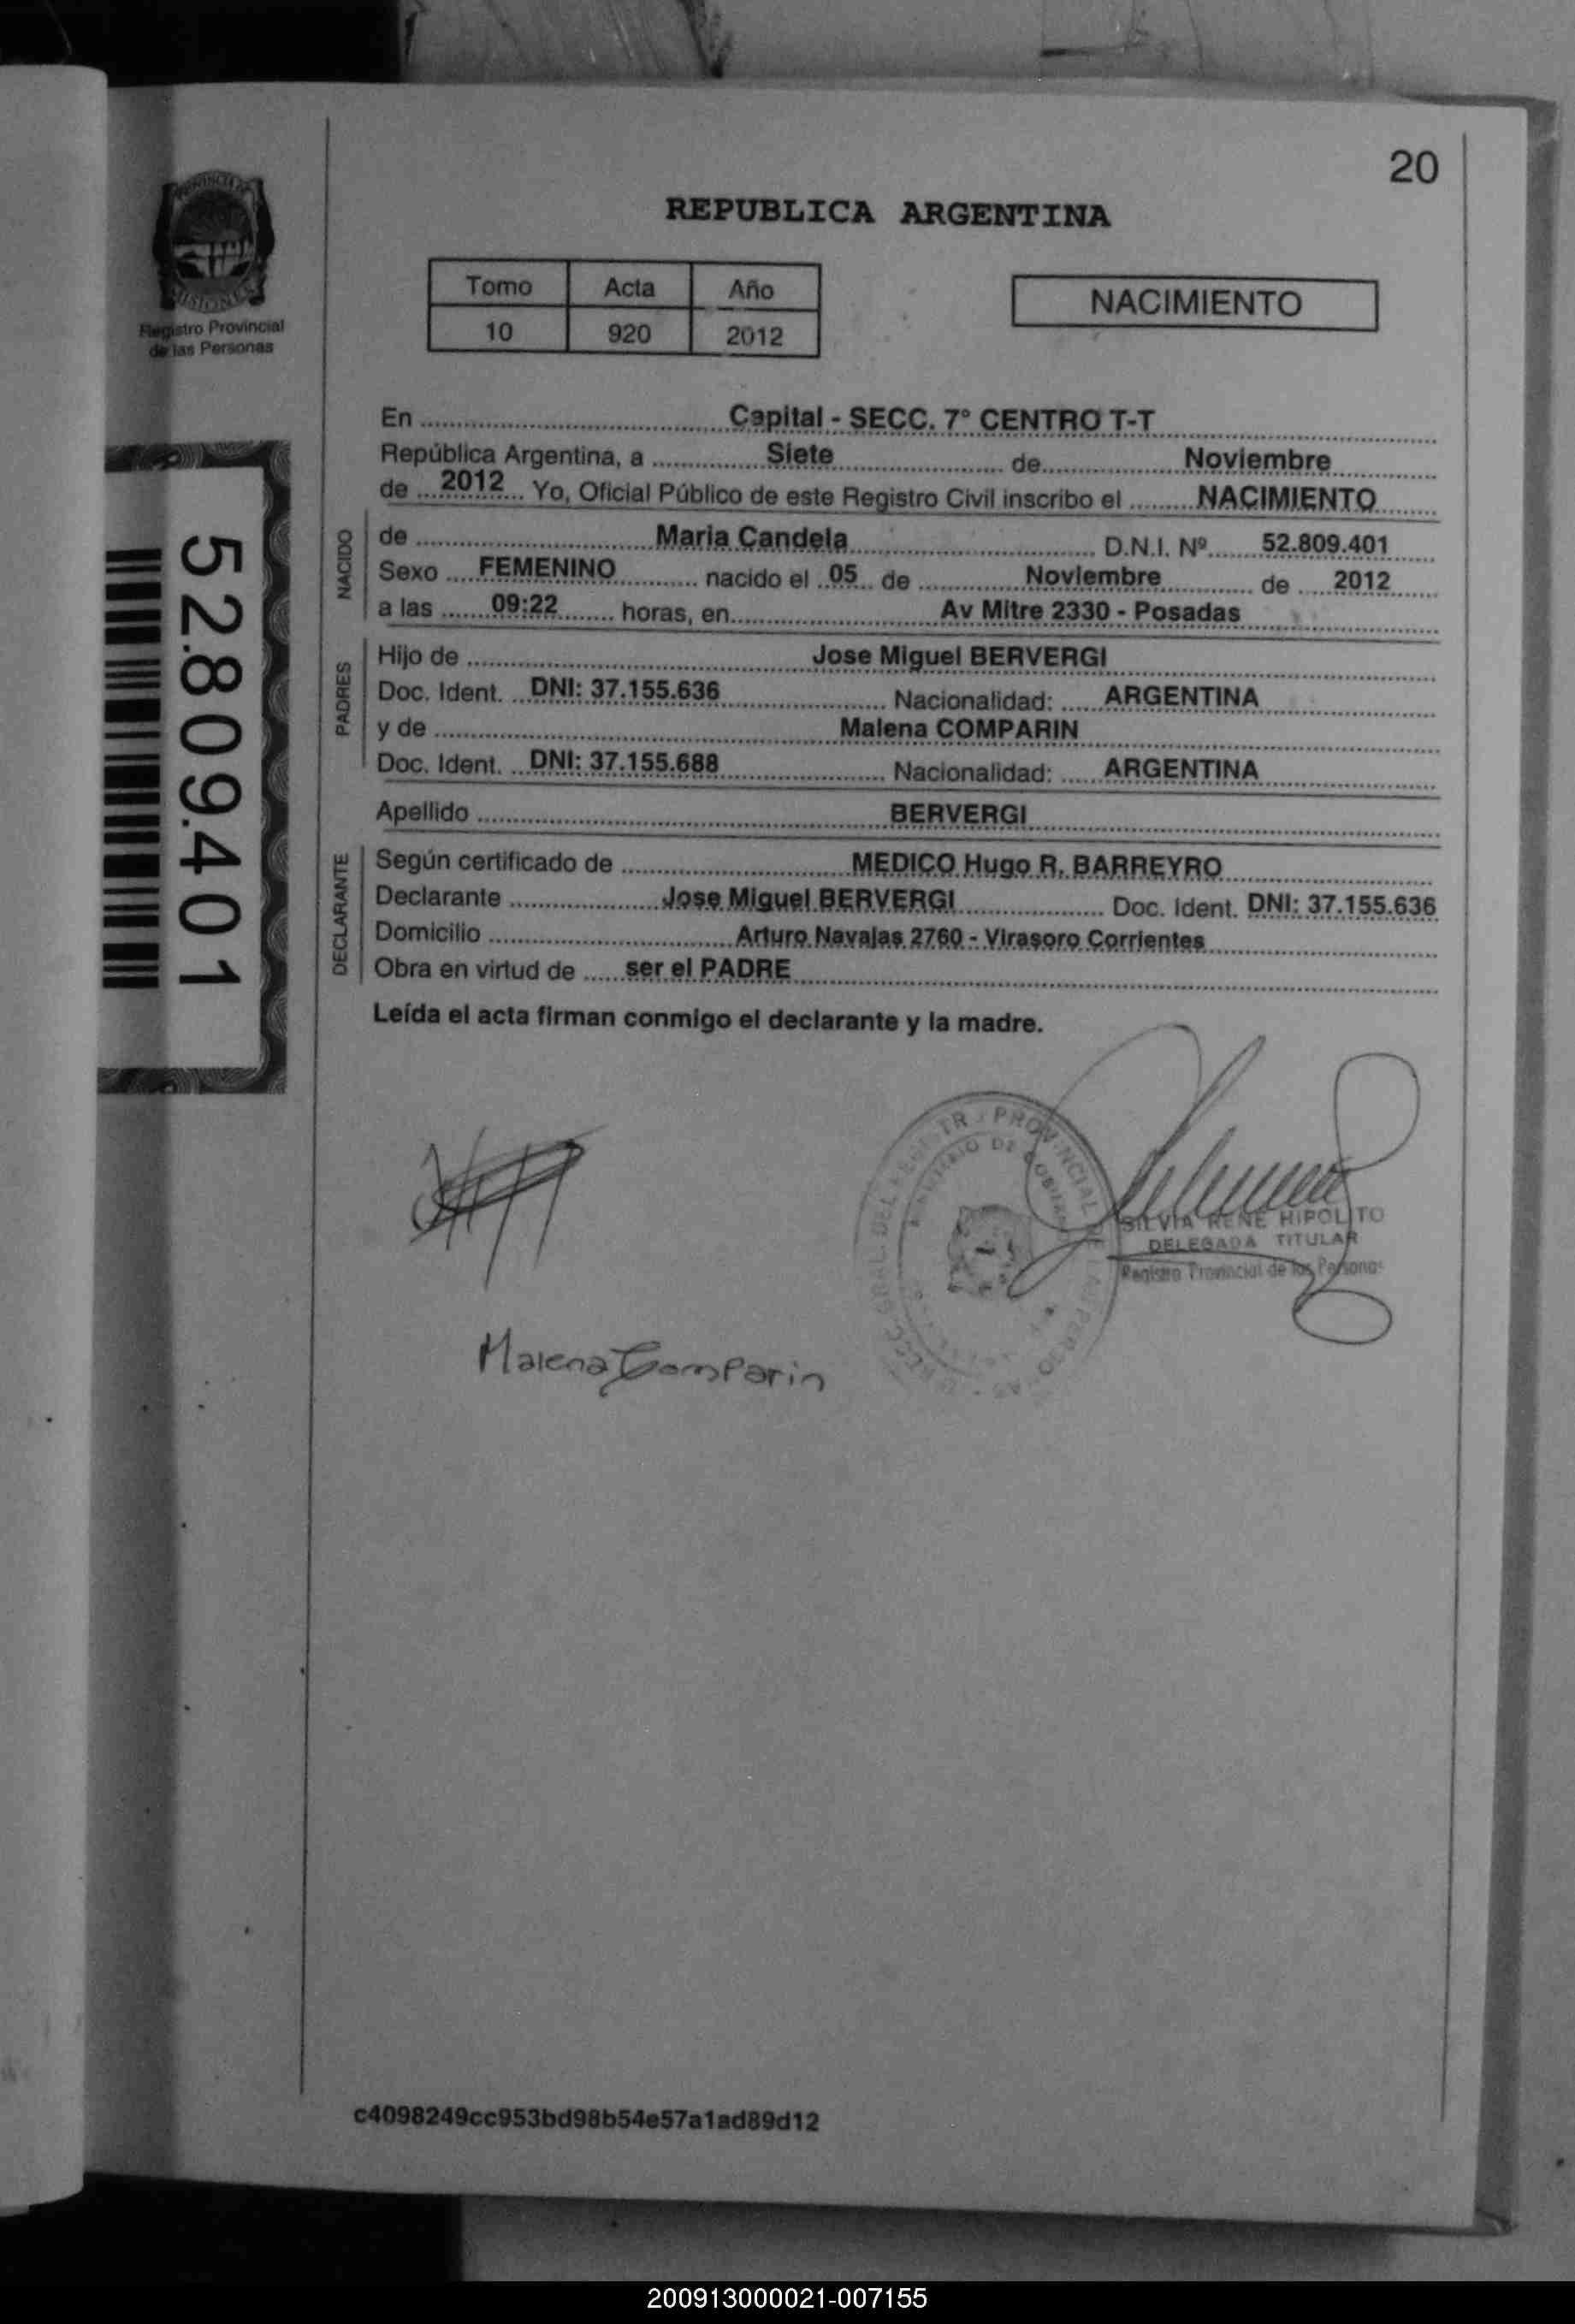 20
REPUBLICA ARGENTINA
PROVINCIA DE
MISIONES
Registro Provincial
de las Personas
Tomo Acta Año
10 920 2012
NACIMIENTO
En Capital - SECC. 7° CENTRO T-T
República Argentina, a Siete de Noviembre
de 2012 Yo, Oficial Público de este Registro Civil inscribo el NACIMIENTO
NACIDO
de Maria Candela D.N.I. Nº 52.809.401
Sexo FEMENINO nacido el 05 de Noviembre de 2012
a las 09:22 horas, en Av Mitre 2330 - Posadas
PADRES
Hijo de Jose Miguel BERVERGI
Doc. Ident. DNI: 37.155.636 Nacionalidad: ARGENTINA
y de Malena COMPARIN
Doc. Ident. DNI: 37.155.688 Nacionalidad: ARGENTINA
Apellido BERVERGI
DECLARANTE
Según certificado de MEDICO Hugo R. BARREYRO
Declarante Jose Miguel BERVERGI Doc. Ident. DNI: 37.155.636
Domicilio Arturo Navajas 2760 - Virasoro Corrientes
Obra en virtud de ser el PADRE
Leída el acta firman conmigo el declarante y la madre.
52.809.401
PROVINCIAL
SILVIA RENE HIPOLITO
DELEGADA TITULAR
Registro Provincial de las Personas
Malena Comparin
c4098249cc953bd98b54e57a1ad89d12
200913000021-007155